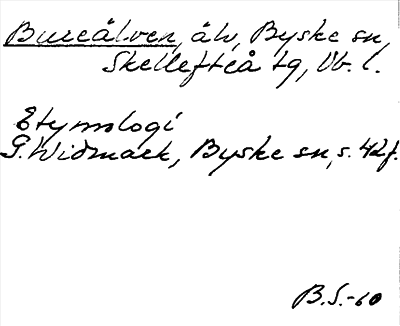 Bureälven, älv, Byske sn,
Skellefteå tg, Vb. l.
Etymologi
G. Widmark, Byske sn, s. 42f.
B.S.-60